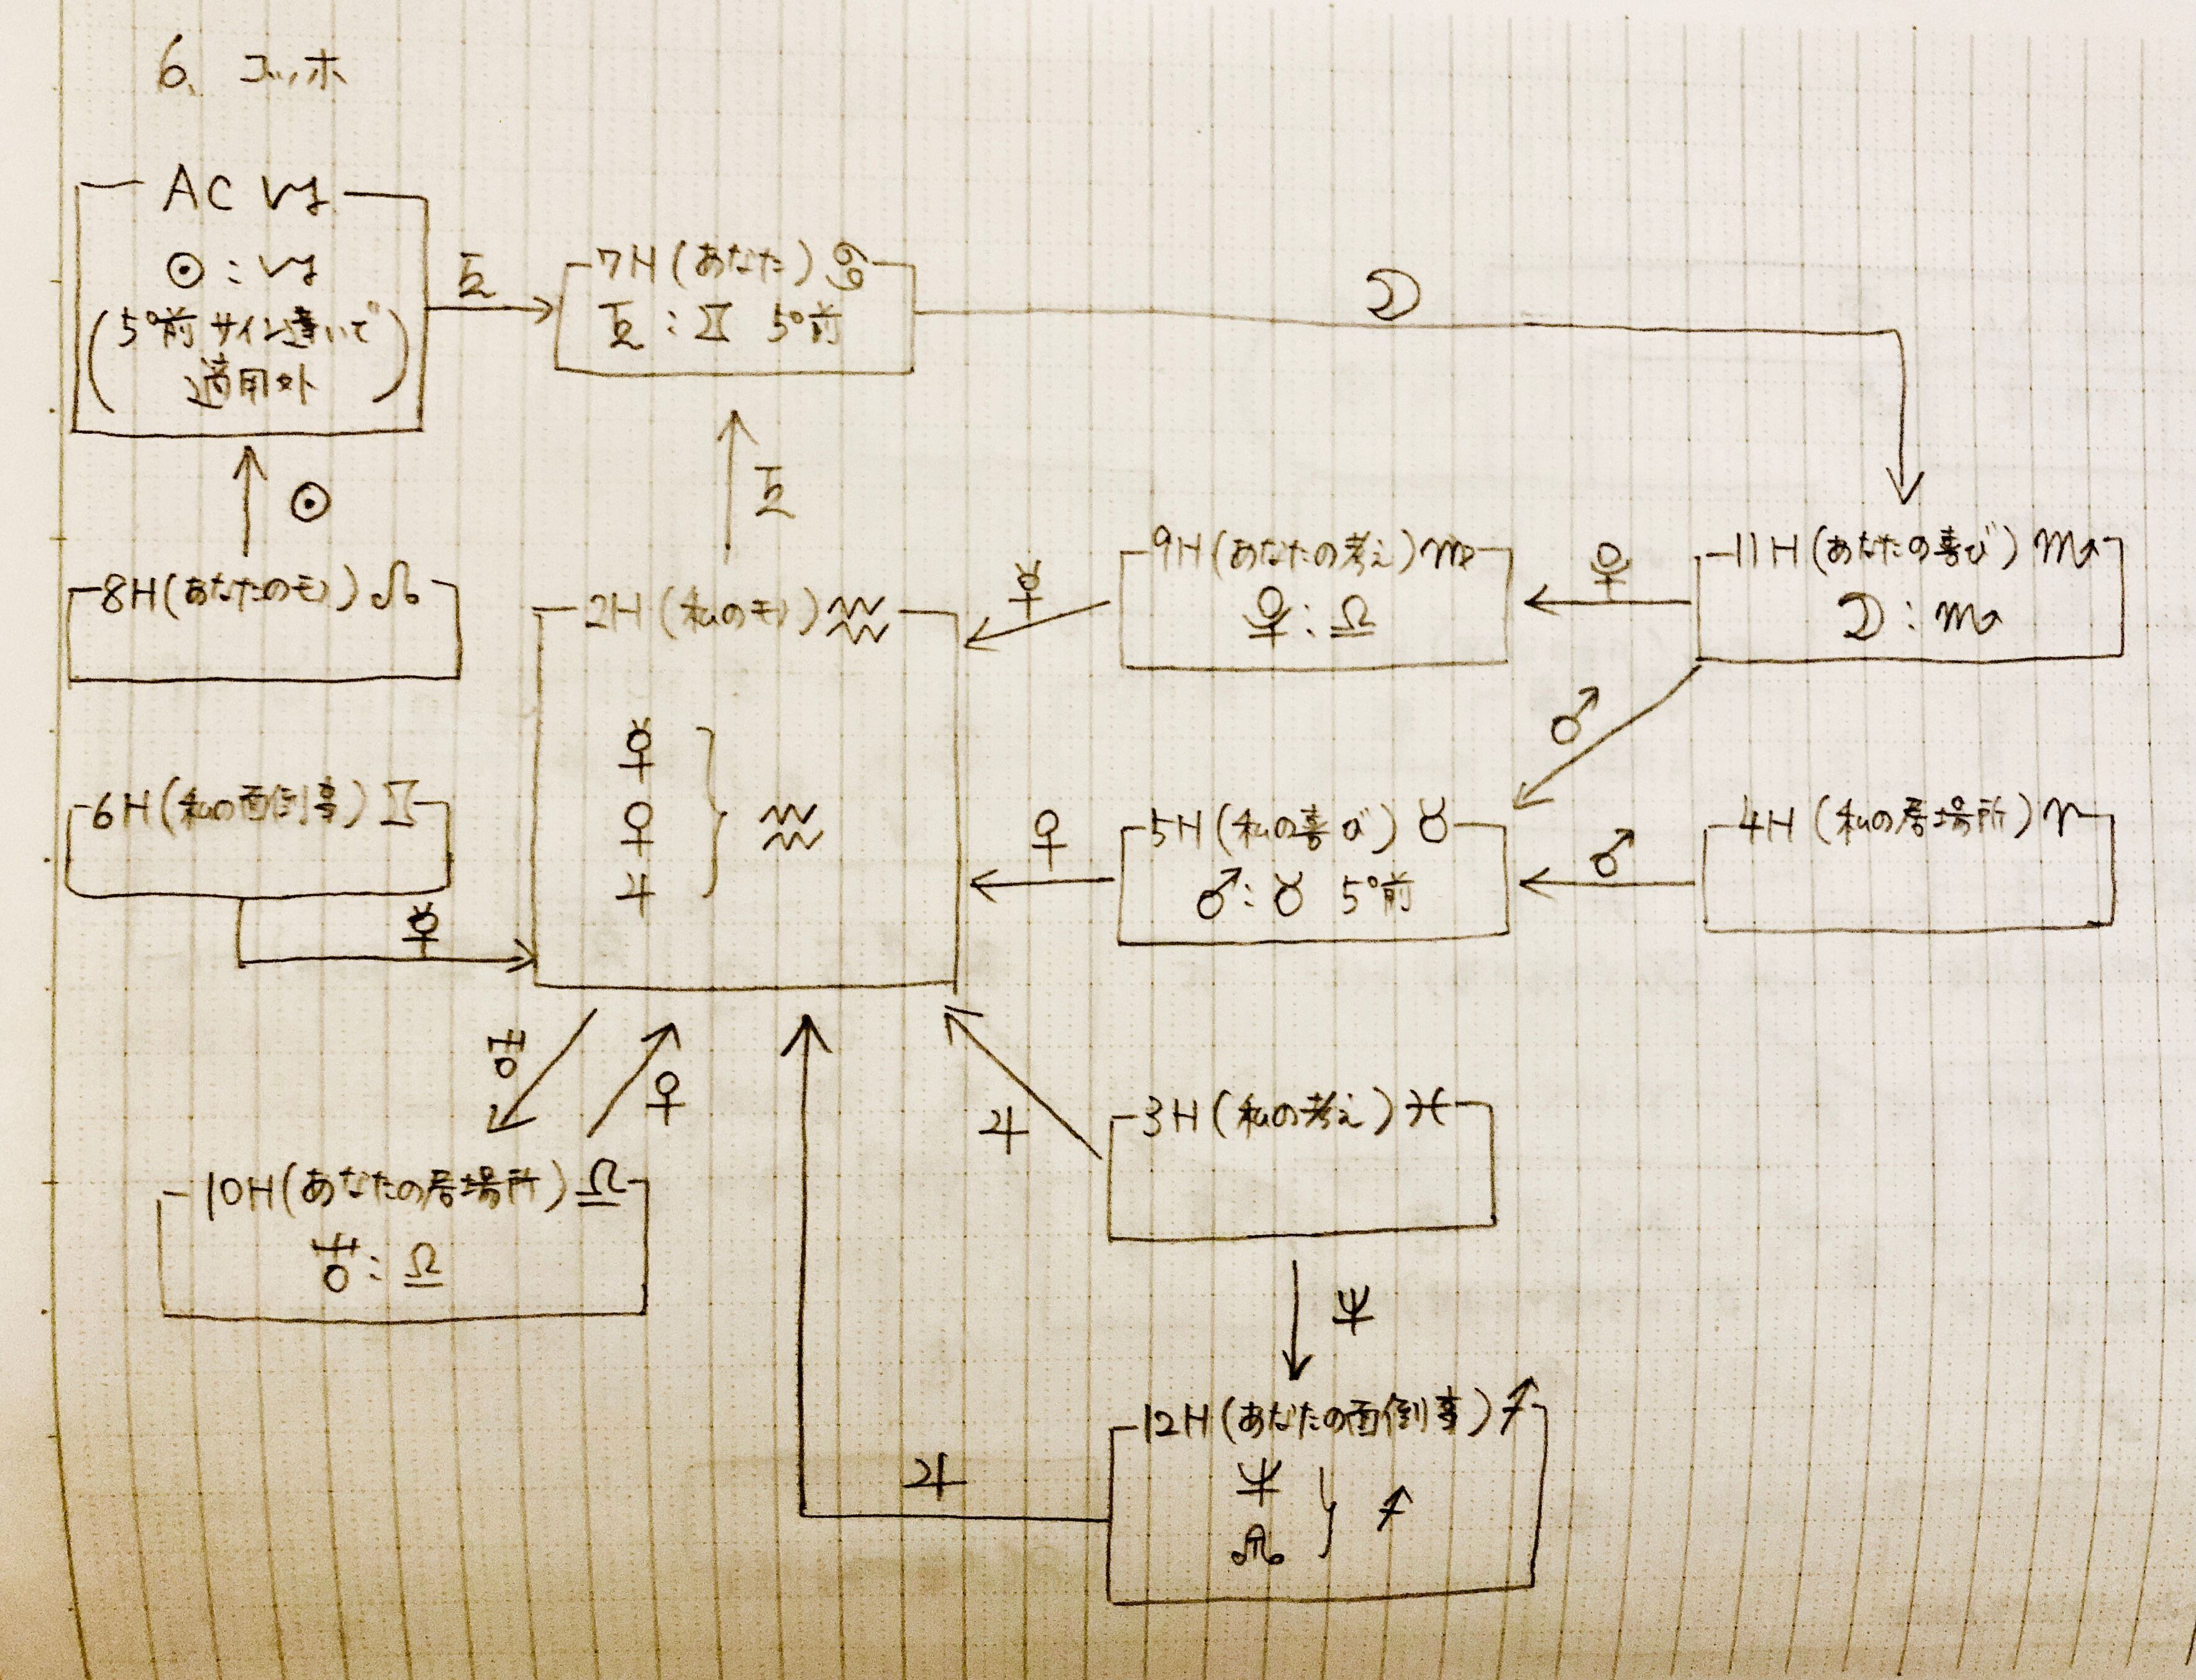 6. ゴッホ
AC ♑
☉:♑
(5°前 サイン違いで
適用外)
♄
7H(あなた)♋
♄:♊ 5°前
☽
☉
♄
8H(あなたのモノ)♌
2H(私のモノ)♒
☿
♀
♃
} ♒
☿
9H(あなたの考え)♍
:♎
11H(あなたの喜び)♏
☽:♏
♂
6H(私の面倒事)♊
☿
♀
5H(私の喜び)♉
♂:♉ 5°前
♂
4H(私の居場所)♈
♀
10H(あなたの居場所)♎
:♎
♃
3H(私の考え)♓
♆
12H(あなたの面倒事)♐
♆
☊
} ♐
♃